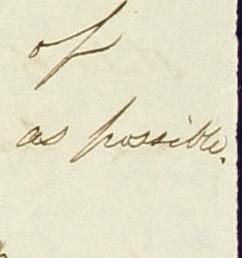 of
as possible.